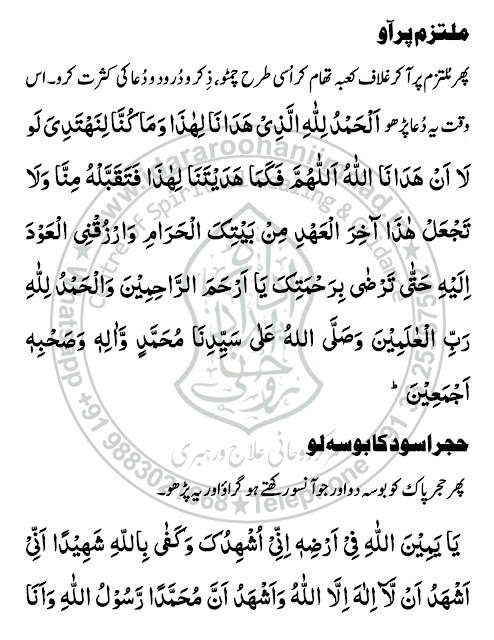 ملتزم پر آو
پھر مُلتزم پر آ کر غلاف کعبہ تھام کر اُسی طرح چمٹو، ذِکر و دُرود و دُعا کی کثرت کرو۔ اس
وقت یہ دُعا پڑھو اَلْحَمْدُ لِلّٰهِ الَّذِیْ هَدَانَا لِهٰذَا وَمَا كُنَّا لِنَهْتَدِیَ لَوْ
لَا اَنْ هَدَانَا اللّٰهُ اَللّٰهُمَّ فَكَمَا هَدَيْتَنَا لِهٰذَا فَتَقَبَّلْهُ مِنَّا وَلَا
تَجْعَلْ هٰذَا آخِرَ الْعَهْدِ مِنْ بَيْتِكَ الْحَرَامِ وَارْزُقْنِی الْعَوْدَ
اِلَيْهِ حَتّٰی تَرْضٰی بِرَحْمَتِكَ يَا اَرْحَمَ الرَّاحِمِيْنَ وَالْحَمْدُ لِلّٰهِ
رَبِّ الْعٰلَمِيْنَ وَصَلَّی اللهُ عَلٰی سَيِّدِنَا مُحَمَّدٍ وَّاٰلِهٖ وَصَحْبِهٖ
اَجْمَعِيْنَ ؕ
حجر اسود کا بوسہ لو
پھر حجر پاک کو بوسہ دو اور جو آنسو رکھتے ہو گراؤ اور یہ پڑھو۔
يَا يَمِيْنَ اللّٰهِ فِیْ اَرْضِهٖ اِنِّیْ اُشْهِدُكَ وَكَفٰی بِاللّٰهِ شَهِيْدًا اَنِّیْ
اَشْهَدُ اَنْ لَّآ اِلٰهَ اِلَّا اللّٰهُ وَاَشْهَدُ اَنَّ مُحَمَّدًا رَّسُوْلُ اللّٰهِ وَاَنَا